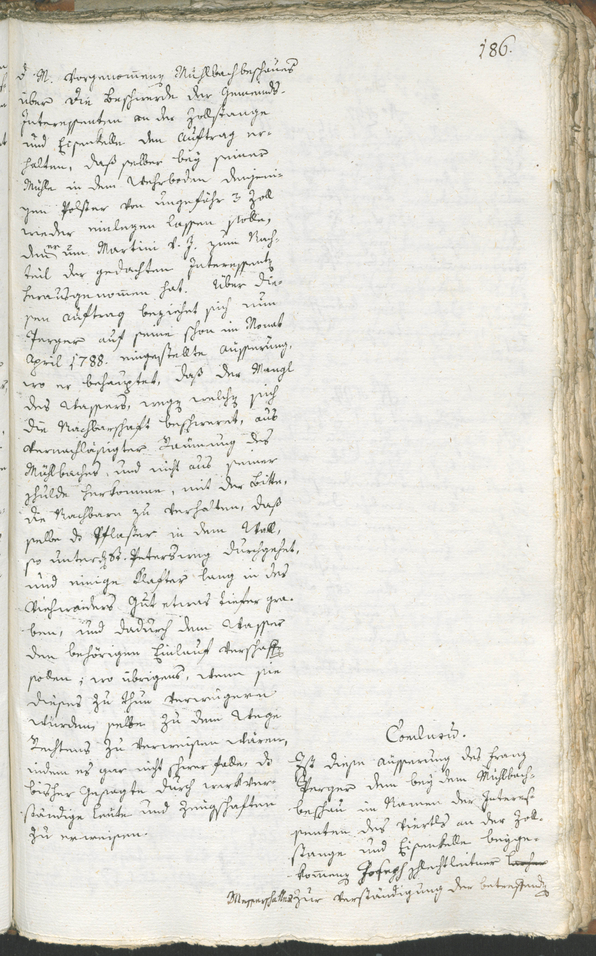 186.
d. M. vorgenommenen Mühlbachbeschaues
über die Beschwerde der Gemeinds-
Interessenten an der Zollstange
und Eisenkelle den Auftrag er-
halten, daß selber bey seiner
Mühle in dem Wehrboden denjeni-
gen Polster von ungefähr 3 Zoll
wieder einlegen lassen solle,
den er um Martini v. J. zum Nach-
teil der gedachten Interessenten
herausgenommen hat. Über die-
sen Auftrag beziehet sich nun
Perger auf seine schon im Monat
April 1788. eingestellte Äusserung,
wo er behauptet, daß der Mangl
des Wassers, wegen welchen sich
die Nachbarschaft beschweret, aus
vernachläßigter Räumung des
Mühlbaches, und nicht aus seiner
Schulde herkomme, mit der Bitte,
die Nachbarn zu verhalten, daß
selbe das Pflaster in dem
so unter den St. Petersweg durchgehet,
und einige Klafter lang in des
Viehweiders Gut etwas tiefer gra-
ben, und dadurch dem Wasser
den behörigen Einlauf verschaffen
sollen; wo übrigens, wenn sie
dieses zu thun verweigern
würden, selbe zu dem Wege
Rechtens zu verweisen wären,
indem es gar nicht schwer falle, das
bisher Gesagte durch werkver-
ständige Leute und Zeugschaften
zu erweisen.
Conclusum.
Ist diese Äusserung des Franz
Perger dem bey dem Mühlbach-
beschau im Namen der Interes-
senten des Viertls an der Zoll-
stange und Eisenkelle beyge-
kommenen Joseph Schlechtleitner
zur Verständigung der betreffenden